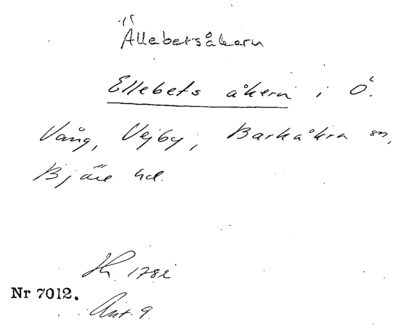 Ällebetsåkern
Ellebets åkern i Ö.
Vång, Vejby, Barkåkra sn,
Bjäre hd.
1782
Nr 7012.
Ant. 9